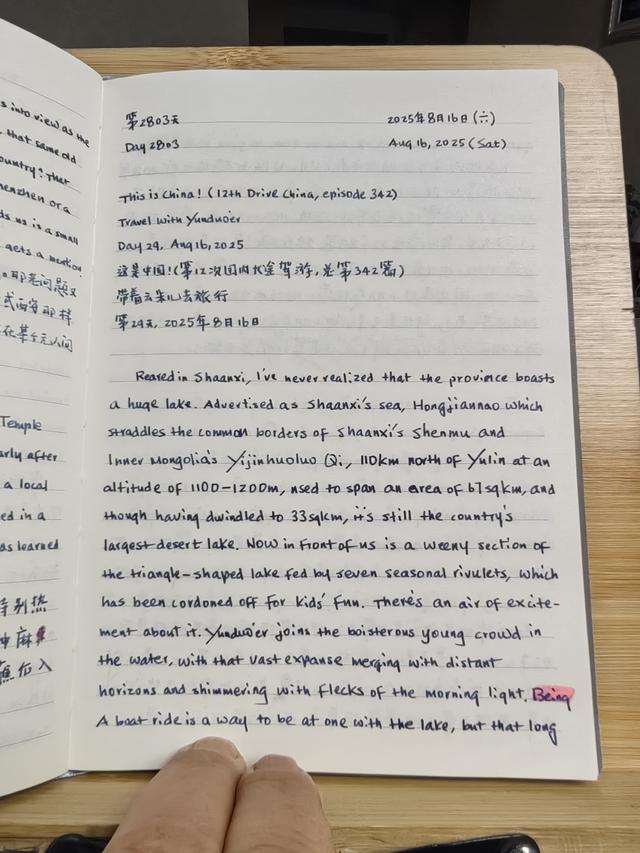 s into view as the
that same old
ountry? Ther
henzhen or a
ds us is a small
gets a mention
那老问题又
式西安那样
在某个无人问
Temple
arly after
a local
ed in a
as learned
特别热
神麻
蕉后入
第2803天 2025年8月16日(六)
Day 2803 Aug 16, 2025 (Sat)
This is China! (12th Drive China, episode 342)
Travel with Yunduo'er
Day 29, Aug 16, 2025
这是中国!(第12次国内长途驾游,总第342篇)
带着云朵儿去旅行
第29天, 2025年8月16日
Reared in Shaanxi, I've never realized that the province boasts
a huge lake. Advertised as Shaanxi's sea, Hongjiannao which
straddles the common borders of Shaanxi's Shenmu and
Inner Mongolia's Yijinhuoluo Qi, 110km north of Yulin at an
altitude of 1100-1200m, used to span an area of 67sqkm, and
though having dwindled to 33sqkm, it's still the country's
largest desert lake. Now in front of us is a weeny section of
the triangle-shaped lake fed by seven seasonal rivulets, which
has been cordoned off for kids' fun. There's an air of excite-
ment about it. Yunduo'er joins the boisterous young crowd in
the water, with that vast expanse merging with distant
horizons and shimmering with flecks of the morning light. Being
A boat ride is a way to be at one with the lake, but that long